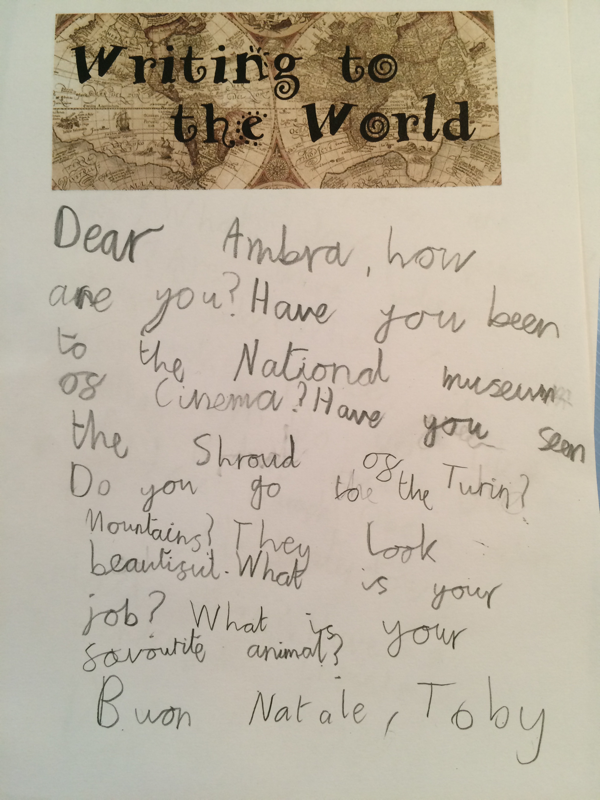 Writing to
the World
Dear Ambra, how
are you? Have you been
to the National museum
of Cinema? Have you seen
the Shroud of Turin?
Do you go to the
Mountains? They look
beautiful. What is your
job? What is your
favourite animal?
Buon Natale, Toby